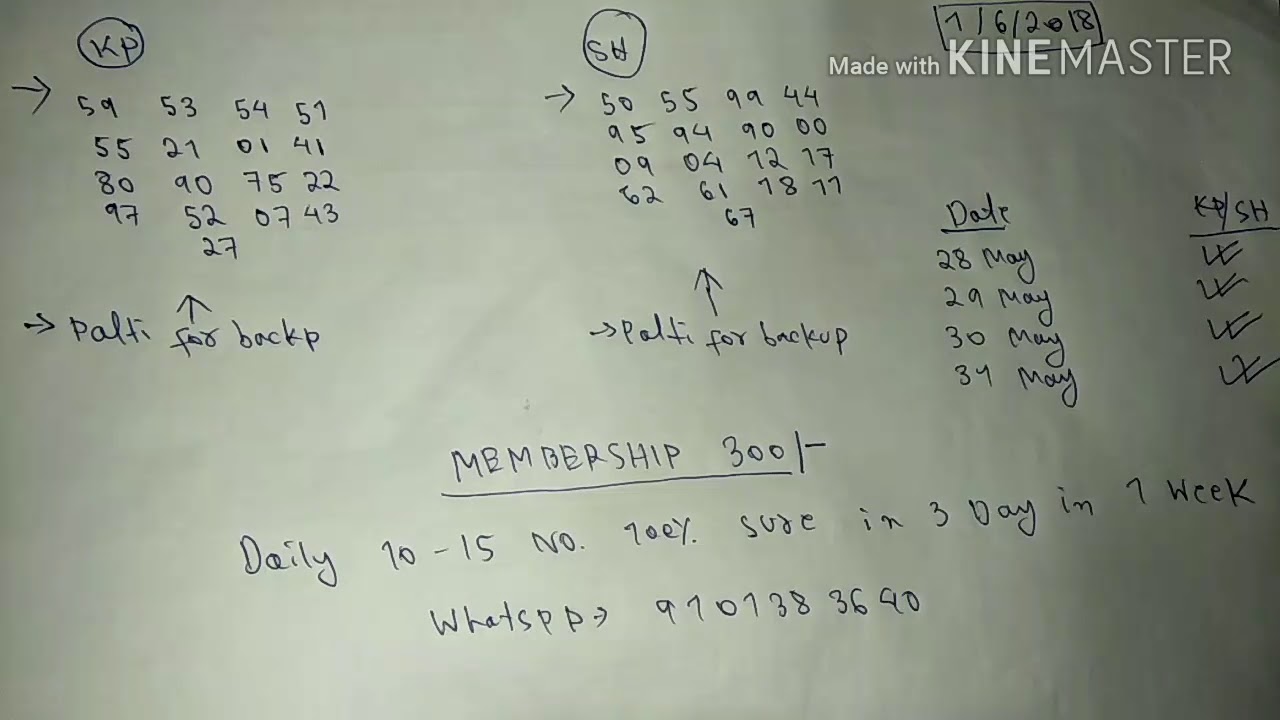 KP
SH
1/6/2018
Made with KINEMASTER
→ 59 53 54 51
55 21 01 41
80 90 75 22
97 52 07 43
27
→ 50 55 99 44
95 94 90 00
09 04 12 17
62 61 18 11
67
→ Palti for backp
→ Palti for backup
Date KP/SH
28 May
29 May
30 May
31 May
MEMBERSHIP 300/-
Daily 10-15 No. 100% sure in 3 Day in 1 Week
Whatspp→ 9101383690